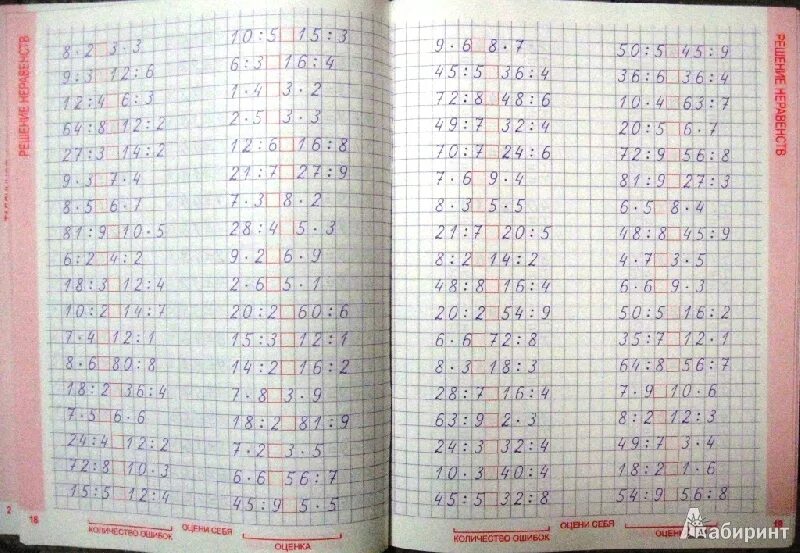 РЕШЕНИЕ НЕРАВЕНСТВ
8·2□3·3
9:3□12:6
12:4□6:3
64:8□12:2
27:3□14:2
9·3□7·4
8·5□6·7
81:9□10·5
6:2□4:2
18:3□12:4
10:2□14:7
7·4□12:1
8·6□80:8
18:2□36:4
7·5□6·6
24:4□12:2
72:8□10·3
15:5□12:4
10:5□15:3
6:3□16:4
1·4□3·2
2·5□3·3
12:6□16:8
21:7□27:9
7·3□8·2
28:4□5·3
9·2□6·9
2·6□5·1
20:2□60:6
15:3□12:1
14:2□16:2
7·8□3·9
18:2□81:9
7·2□3·5
6·6□56:7
45:9□5·5
2
18
КОЛИЧЕСТВО ОШИБОК
ОЦЕНИ СЕБЯ
ОЦЕНКА
9·6□8·7
45:5□36:4
72:8□48:6
49:7□32:4
70:7□24:6
7·6□9·4
8·3□5·5
21:7□20:5
8:2□14:2
48:8□16:4
20:2□54:9
6·6□72:8
8·3□18:3
28:7□16:4
63:9□2·3
24:3□32:4
10·3□40:4
45:5□32:8
50:5□45:9
36:6□36:4
10·4□63:7
20:5□6·7
72:9□56:8
81:9□27:3
6·5□8·4
48:8□45:9
4·7□3·5
6·6□9·3
50:5□16:2
35:7□12·1
64:8□56:7
7·9□10·6
8:2□12:3
49:7□3·4
18:2□1·6
54:9□56:8
РЕШЕНИЕ НЕРАВЕНСТВ
КОЛИЧЕСТВО ОШИБОК
ОЦЕНИ СЕБЯ
19
Лабиринт